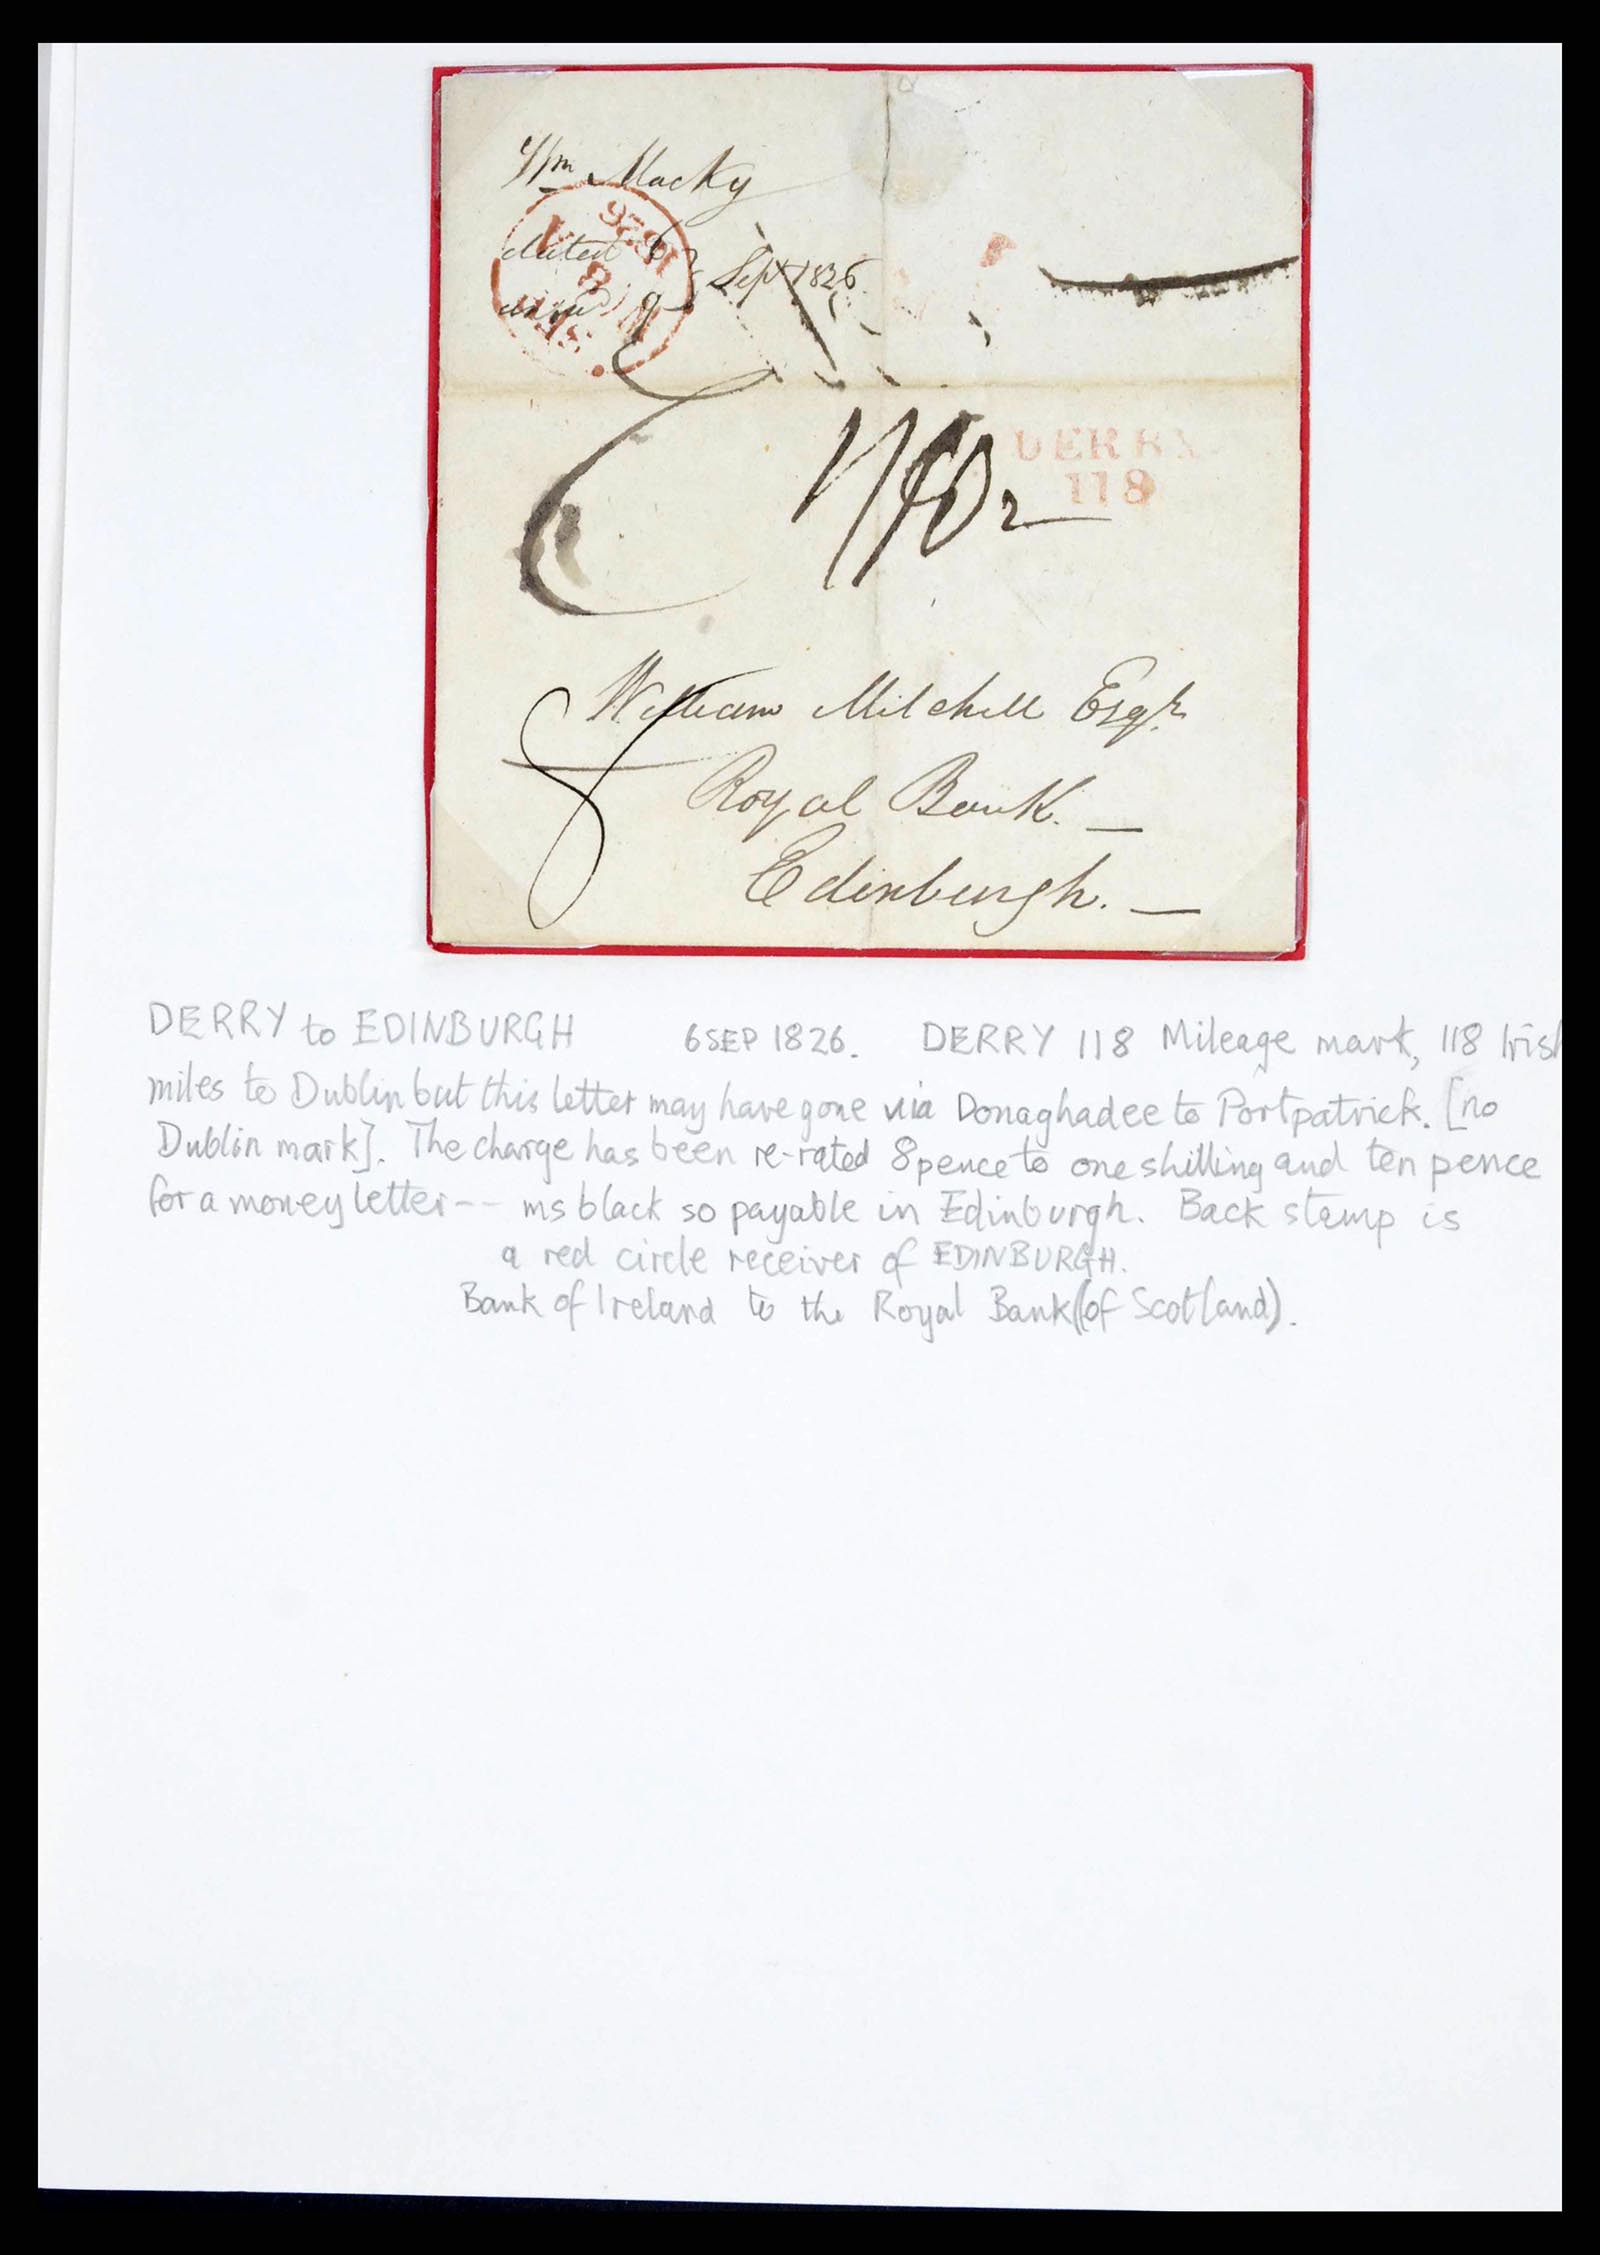 Wm Macky
dated 6
Sept 1826
9
1826
8
DERRY
118
William Mitchell Esqr.
Royal Bank. —
Edinburgh. —
8
DERRY to EDINBURGH 6 SEP 1826. DERRY 118 Mileage mark, 118 Irish
miles to Dublin but this letter may have gone via Donaghadee to Portpatrick. [no
Dublin mark]. The charge has been re-rated 8 pence to one shilling and ten pence
for a money letter -- ms black so payable in Edinburgh. Back stamp is
a red circle receiver of EDINBURGH.
Bank of Ireland to the Royal Bank (of Scotland).